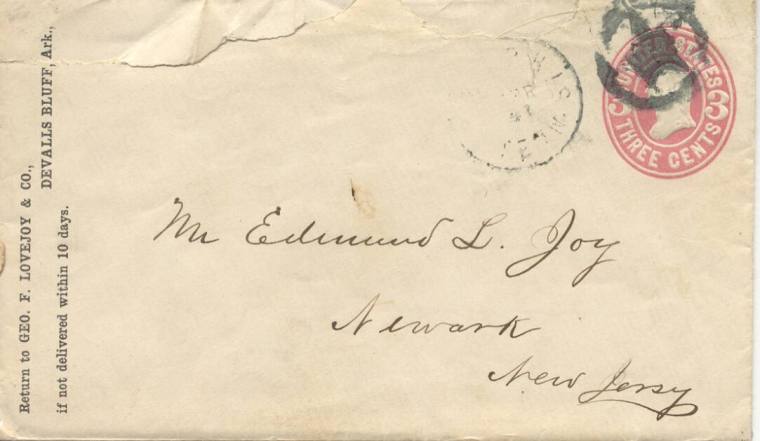 Return to GEO. F. LOVEJOY & CO.,
DEVALLS BLUFF, Ark.,
if not delivered within 10 days.
UNITED STATES
3 3
THREE CENTS
Mr Edmund L. Joy
Newark
New Jersey